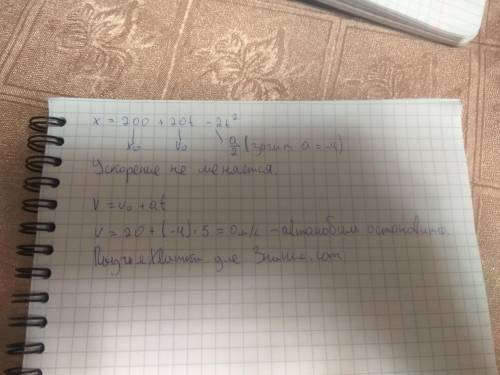 x = 200 + 20t - 2t²
x₀ v₀ a/2 (значит a = -4)
Ускорение не меняется.
v = v₀ + at
v = 20 + (-4) · 5 = 0 м/с - автомобиль остановится.
для Знания.com